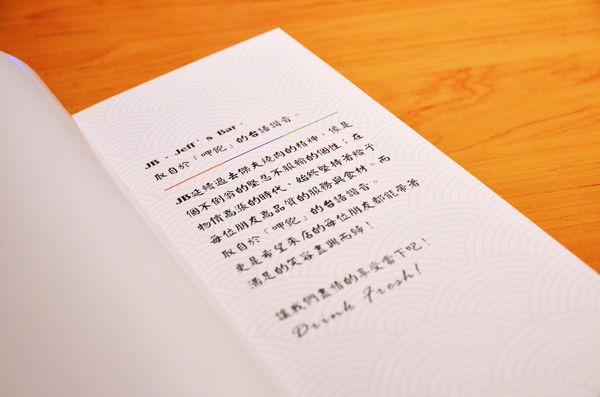 JB - Jeff's Bar,
取自於「呷飽」的台語諧音。
JB延續過去傑夫燒肉的精神，像是
個不倒翁的堅忍不服輸的個性；在
物價高漲的時代，始終堅持著給予
每位朋友高品質的服務與食材。而
取自於「呷飽」的台語諧音。
更是希望來店的每位朋友都能帶著
滿足的笑容盡興而歸！
讓我們盡情的享受當下吧！
Drink Fresh!